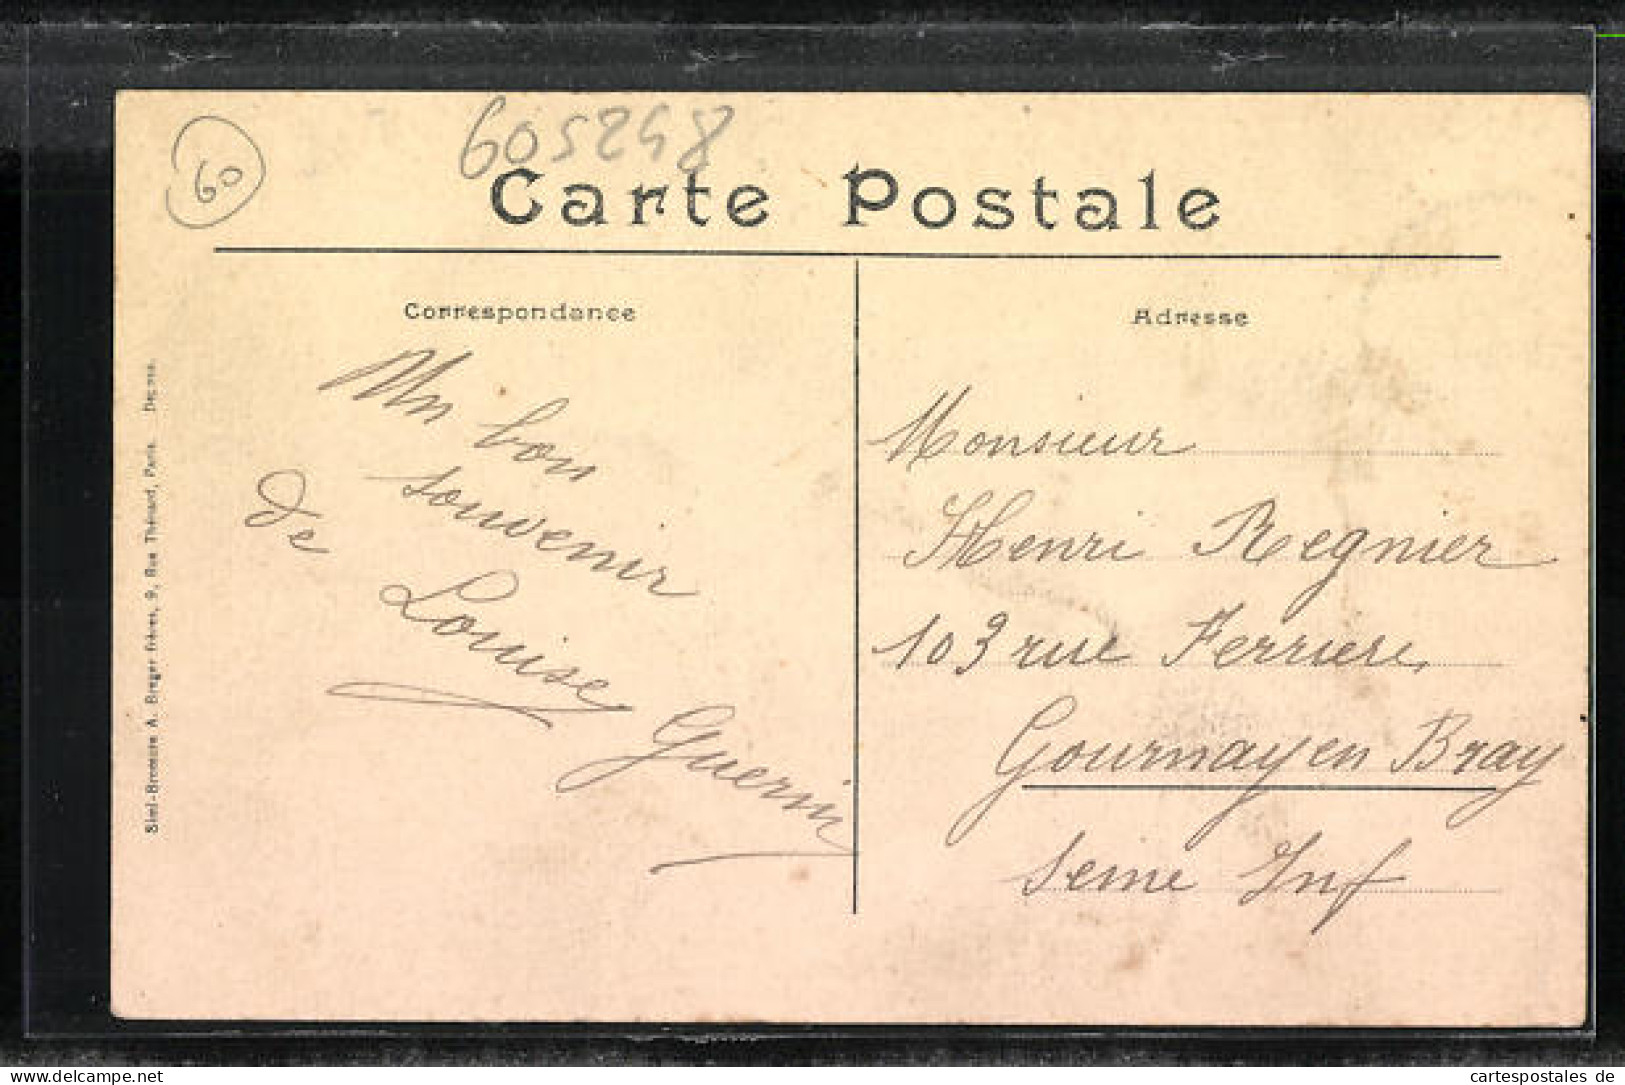 60
605248
Carte Postale
Correspondance
Un bon
souvenir
de Louise
Guerin
Adresse
Monsieur
Henri Regnier
103 rue Ferriere,
Gournay en Bray
Seine Inf
Simi-Bromure A. Breger frères, 9, Rue Thénard, Paris.
© cartespostales.de
cartespostales de